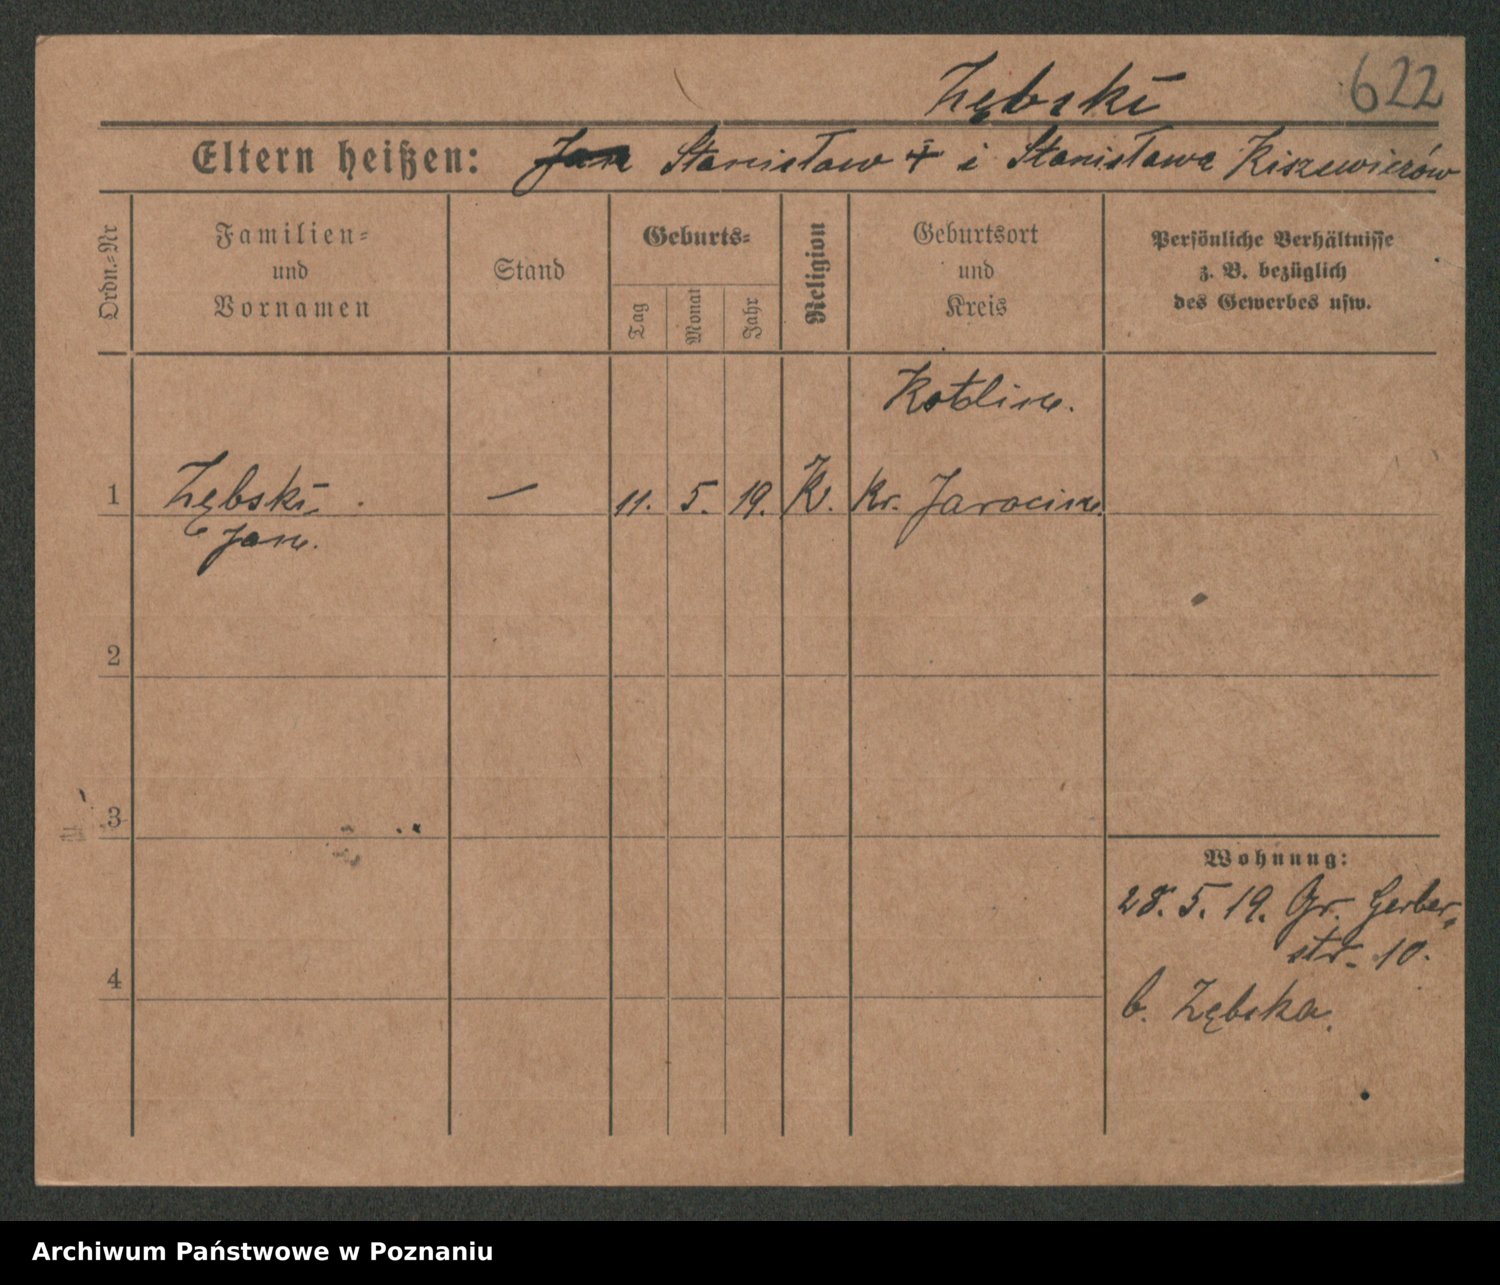 Zębski 622
Eltern heißen: Jan Stanisław + i Stanisława Kiszewierów
Ordn.=Nr
Familien=
und
Vornamen
Stand
Geburts=
Tag
Monat
Jahr
Religion
Geburtsort
und
Kreis
Persönliche Verhältnisse
z. B. bezüglich
des Gewerbes usw.
Kotlin.
1 Zębski — 11. 5. 19. K. Kr. Jarocin.
Jan.
2
3
Wohnung:
28. 5. 19. Gr. Gerber
str. 10.
4
b. Zębska.
Archiwum Państwowe w Poznaniu